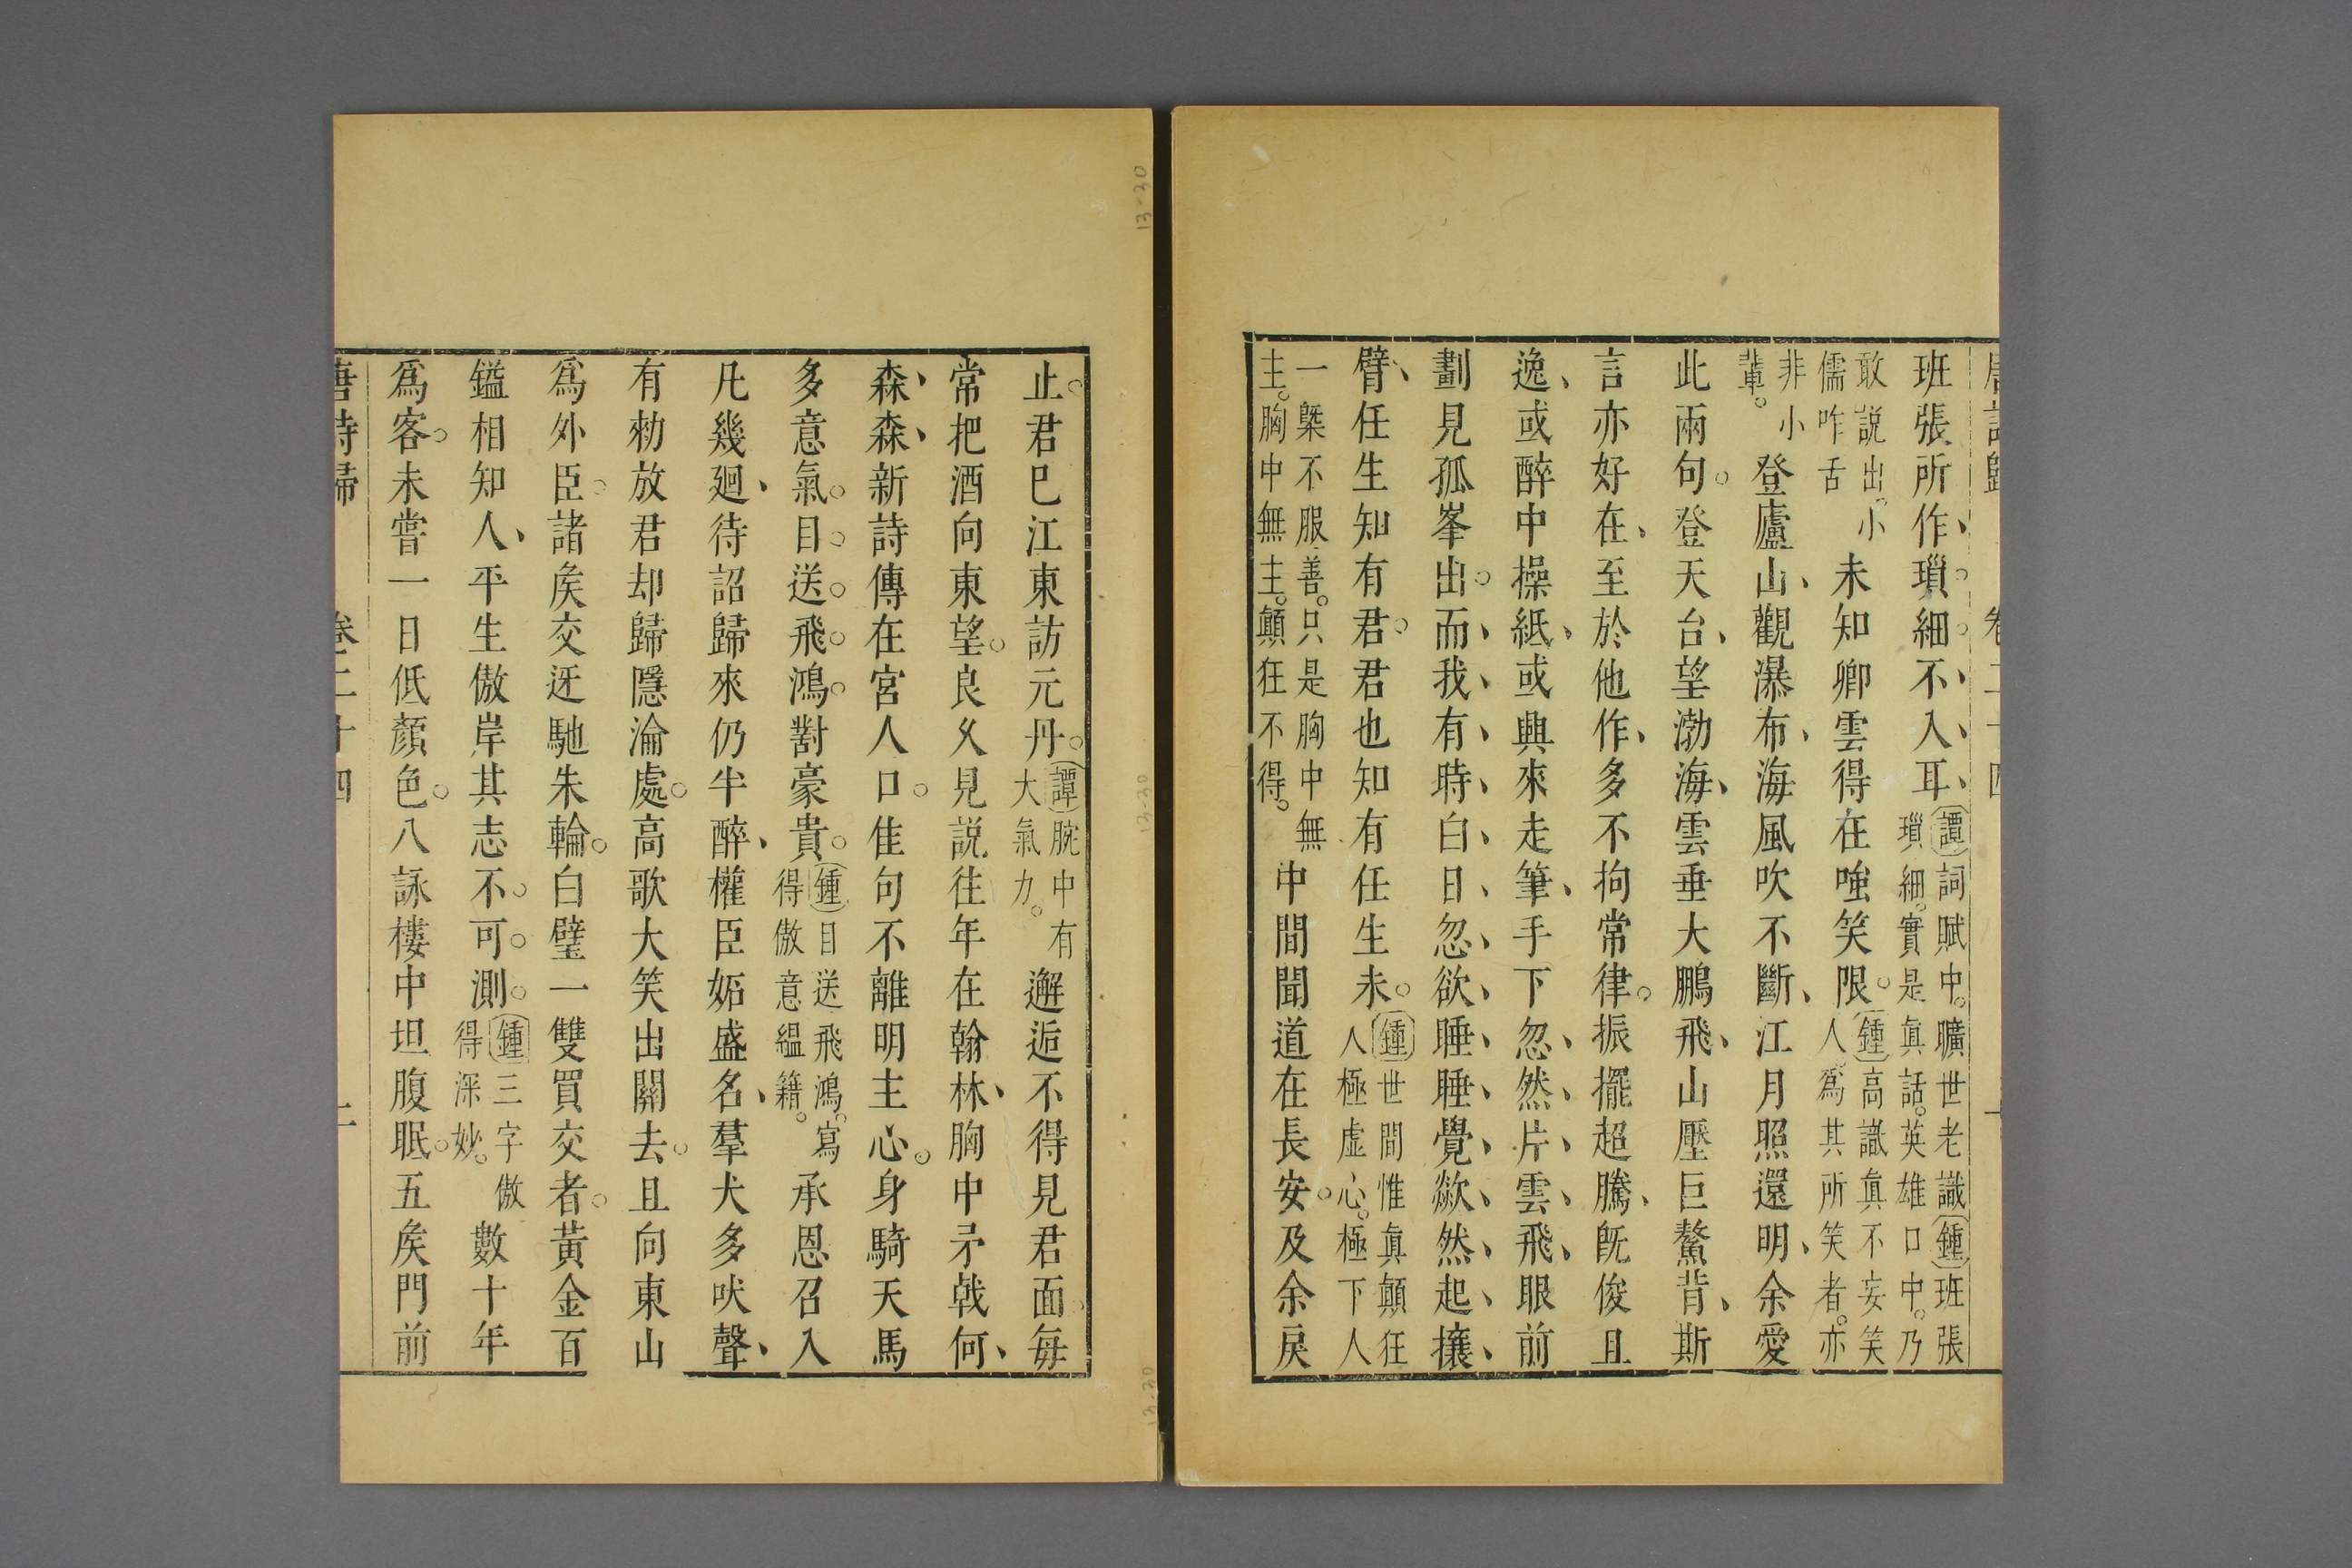 唐詩歸 卷二十四
班張所作瑣細不入耳譚詞賦中曠世老識鍾班張瑣細實是眞話英雄口中乃
敢説出小儒咋舌未知卿雲得在嗤笑限鍾高識眞不妄笑人爲其所笑者亦
非小輩登廬山觀瀑布海風吹不斷江月照還明余愛
此兩句登天台望渤海雲垂大鵬飛山壓巨鰲背斯
言亦好在至於他作多不拘常律振擺超騰既俊且
逸或醉中操紙或興來走筆手下忽然片雲飛眼前
劃見孤峯出而我有時白日忽欲睡睡覺歘然起攘
臂任生知有君君也知有任生未鍾世間惟眞顛狂人極虛心極下人
一槩不服善只是胸中無主胸中無主顛狂不得中間聞道在長安及余戾
止君已江東訪元丹譚腕中有大氣力邂逅不得見君面每
常把酒向東望良久見説往年在翰林胸中矛戟何
森森新詩傳在宮人口佳句不離明主心身騎天馬
多意氣目送飛鴻對豪貴鍾目送飛鴻寫得傲意縕籍承恩召入
凡幾廻待詔歸來仍半醉權臣妬盛名羣犬多吠聲
有勑放君却歸隱淪處高歌大笑出關去且向東山
爲外臣諸矦交迓馳朱輪白璧一雙買交者黃金百
鎰相知人平生傲岸其志不可測鍾三字傲得深妙數十年
爲客未嘗一日低顏色八詠樓中坦腹眠五矦門前
唐詩歸 卷二十四 二
13-20
13-20
13-20